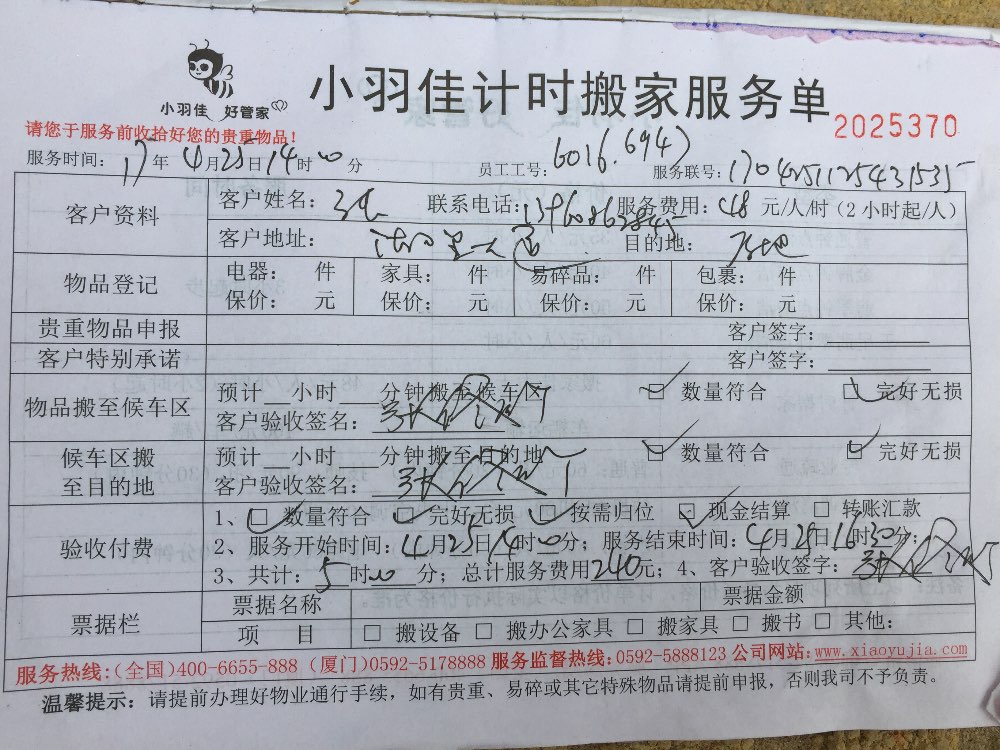 小羽佳 好管家
小羽佳计时搬家服务单
2025370
请您于服务前收拾好您的贵重物品!
服务时间: 17年 4月25日14时00分 员工工号: 6016.6947 服务联号: 1704251125431535
客户资料 客户姓名: 联系电话: 服务费用: 48 元/人/时(2小时起/人)
客户地址: 目的地:
物品登记 电器: 件 家具: 件 易碎品: 件 包裹: 件
保价: 元 保价: 元 保价: 元 保价: 元
贵重物品申报 客户签字:
客户特别承诺 客户签字:
物品搬至候车区 预计 小时 分钟搬至候车区 数量符合 完好无损
客户验收签名:
候车区搬至目的地 预计 小时 分钟搬至目的地 数量符合 完好无损
客户验收签名:
验收付费 1、 数量符合 完好无损 按需归位 现金结算 转账汇款
2、服务开始时间: 4月25日14时00分; 服务结束时间: 4月25日16时30分;
3、共计: 5时00分; 总计服务费用240元; 4、客户验收签字:
票据栏 票据名称 票据金额
项 目 搬设备 搬办公家具 搬家具 搬书 其他:
服务热线:(全国)400-6655-888 (厦门)0592-5178888 服务监督热线:0592-5888123 公司网站:www.xiaoyujia.com
温馨提示: 请提前办理好物业通行手续, 如有贵重、易碎或其它特殊物品请提前申报, 否则我司不予负责。